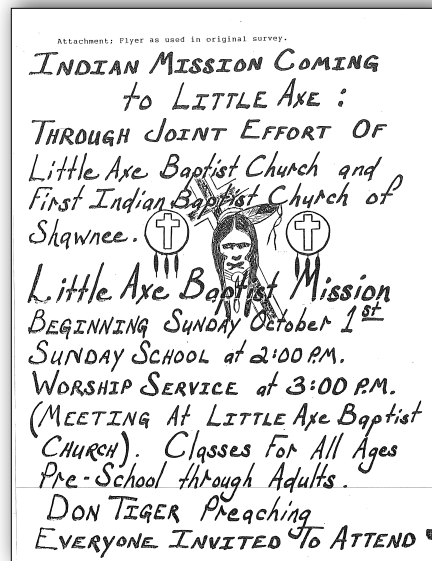 Attachment; Flyer as used in original survey.
INDIAN MISSION COMING
to LITTLE AXE :
THROUGH JOINT EFFORT OF
Little Axe Baptist Church and
First Indian Baptist Church of
Shawnee.
Little Axe Baptist Mission
BEGINNING SUNDAY October 1st
SUNDAY SCHOOL at 2:00 P.M.
WORSHIP SERVICE at 3:00 P.M.
(MEETING At LITTLE Axe Baptist
CHURCH). Classes For All Ages
Pre-School through Adults.
DON TIGER Preaching
EVERYONE INVITED To ATTEND